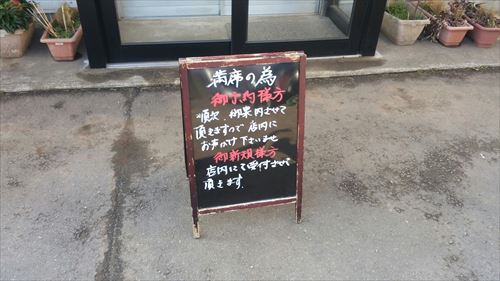 満席の為
御予約様方
順次、御案内させて
頂きますので店内に
お声かけ下さいませ
御新規様方
店内にて受付させて
頂きます。